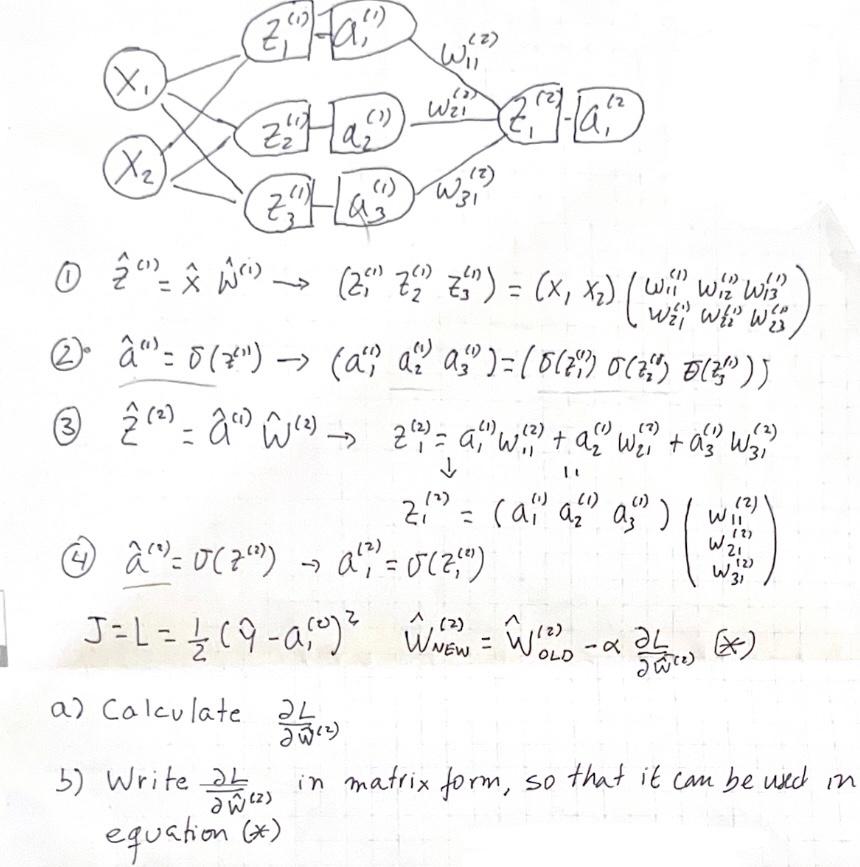 z₁⁽¹⁾ a₁⁽¹⁾ w₁₁⁽²⁾
x₁
z₂⁽¹⁾ a₂⁽¹⁾ w₂₁⁽²⁾ z₁⁽²⁾ a₁⁽²
x₂
z₃⁽¹⁾ a₃⁽¹⁾ w₃₁⁽²⁾
① ẑ⁽¹⁾ = x̂ ŵ⁽¹⁾ → (z₁⁽¹⁾ z₂⁽¹⁾ z₃⁽¹⁾) = (x₁ x₂) (w₁₁⁽¹⁾ w₁₂⁽¹⁾ w₁₃⁽¹⁾
w₂₁⁽¹⁾ w₂₂⁽¹⁾ w₂₃⁽¹⁾)
②. â⁽¹⁾ = σ(z⁽¹⁾) → (a₁⁽¹⁾ a₂⁽¹⁾ a₃⁽¹⁾) = (σ(z₁⁽¹⁾) σ(z₂⁽¹⁾) σ(z₃⁽¹⁾))
③ ẑ⁽²⁾ = â⁽¹⁾ ŵ⁽²⁾ → z₁⁽²⁾ = a₁⁽¹⁾ w₁₁⁽²⁾ + a₂⁽¹⁾ w₂₁⁽²⁾ + a₃⁽¹⁾ w₃₁⁽²⁾
↓ ıı
z₁⁽²⁾ = (a₁⁽¹⁾ a₂⁽¹⁾ a₃⁽¹⁾) (w₁₁⁽²⁾
w₂₁⁽²⁾
w₃₁⁽²⁾)
④ â⁽²⁾ = σ(z⁽²⁾) → a₁⁽²⁾ = σ(z₁⁽²⁾)
J = L = 1/2 (ŷ - a₁⁽²⁾)² ŵ_NEW⁽²⁾ = ŵ_OLD⁽²⁾ - α ∂L/∂ŵ⁽²⁾ (*)
a) Calculate ∂L/∂ŵ⁽²⁾
b) Write ∂L/∂ŵ⁽²⁾ in matrix form, so that it can be used in
equation (*)